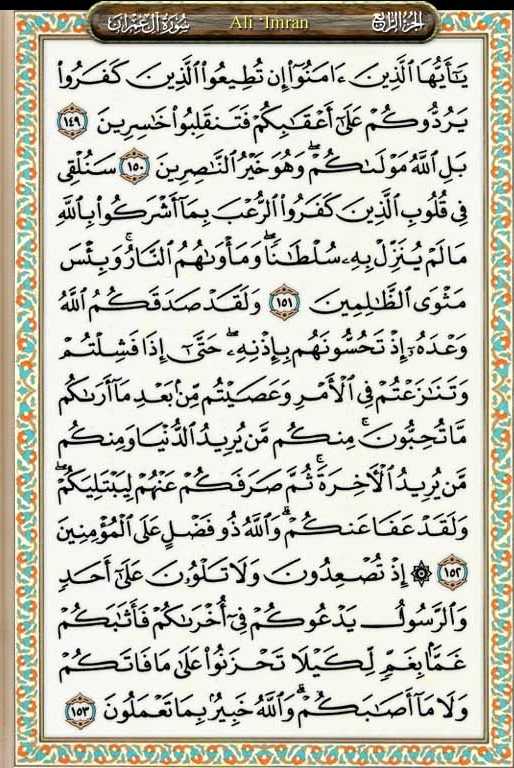 سُورَةُ آلِ عِمْرَان Ali 'Imran الجُزْءُ الرَّابِعُ
يَٰٓأَيُّهَا ٱلَّذِينَ ءَامَنُوٓا۟ إِن تُطِيعُوا۟ ٱلَّذِينَ كَفَرُوا۟
يَرُدُّوكُمْ عَلَىٰٓ أَعْقَٰبِكُمْ فَتَنقَلِبُوا۟ خَٰسِرِينَ ١٤٩
بَلِ ٱللَّهُ مَوْلَىٰكُمْ ۖ وَهُوَ خَيْرُ ٱلنَّٰصِرِينَ ١٥٠ سَنُلْقِى
فِى قُلُوبِ ٱلَّذِينَ كَفَرُوا۟ ٱلرُّعْبَ بِمَآ أَشْرَكُوا۟ بِٱللَّهِ
مَا لَمْ يُنَزِّلْ بِهِۦ سُلْطَٰنًا ۖ وَمَأْوَىٰهُمُ ٱلنَّارُ ۚ وَبِئْسَ
مَثْوَى ٱلظَّٰلِمِينَ ١٥١ وَلَقَدْ صَدَقَكُمُ ٱللَّهُ
وَعْدَهُۥٓ إِذْ تَحُسُّونَهُم بِإِذْنِهِۦ ۖ حَتَّىٰٓ إِذَا فَشِلْتُمْ
وَتَنَٰزَعْتُمْ فِى ٱلْأَمْرِ وَعَصَيْتُم مِّنۢ بَعْدِ مَآ أَرَىٰكُم
مَّا تُحِبُّونَ ۚ مِنكُم مَّن يُرِيدُ ٱلدُّنْيَا وَمِنكُم
مَّن يُرِيدُ ٱلْءَاخِرَةَ ۚ ثُمَّ صَرَفَكُمْ عَنْهُمْ لِيَبْتَلِيَكُمْ ۖ
وَلَقَدْ عَفَا عَنكُمْ ۗ وَٱللَّهُ ذُو فَضْلٍ عَلَى ٱلْمُؤْمِنِينَ
١٥٢ ۞ إِذْ تُصْعِدُونَ وَلَا تَلْوُۥنَ عَلَىٰٓ أَحَدٍ
وَٱلرَّسُولُ يَدْعُوكُمْ فِىٓ أُخْرَىٰكُمْ فَأَثَٰبَكُمْ
غَمًّۢا بِغَمٍّ لِّكَيْلَا تَحْزَنُوا۟ عَلَىٰ مَا فَاتَكُمْ
وَلَا مَآ أَصَٰبَكُمْ ۗ وَٱللَّهُ خَبِيرٌۢ بِمَا تَعْمَلُونَ ١٥٣